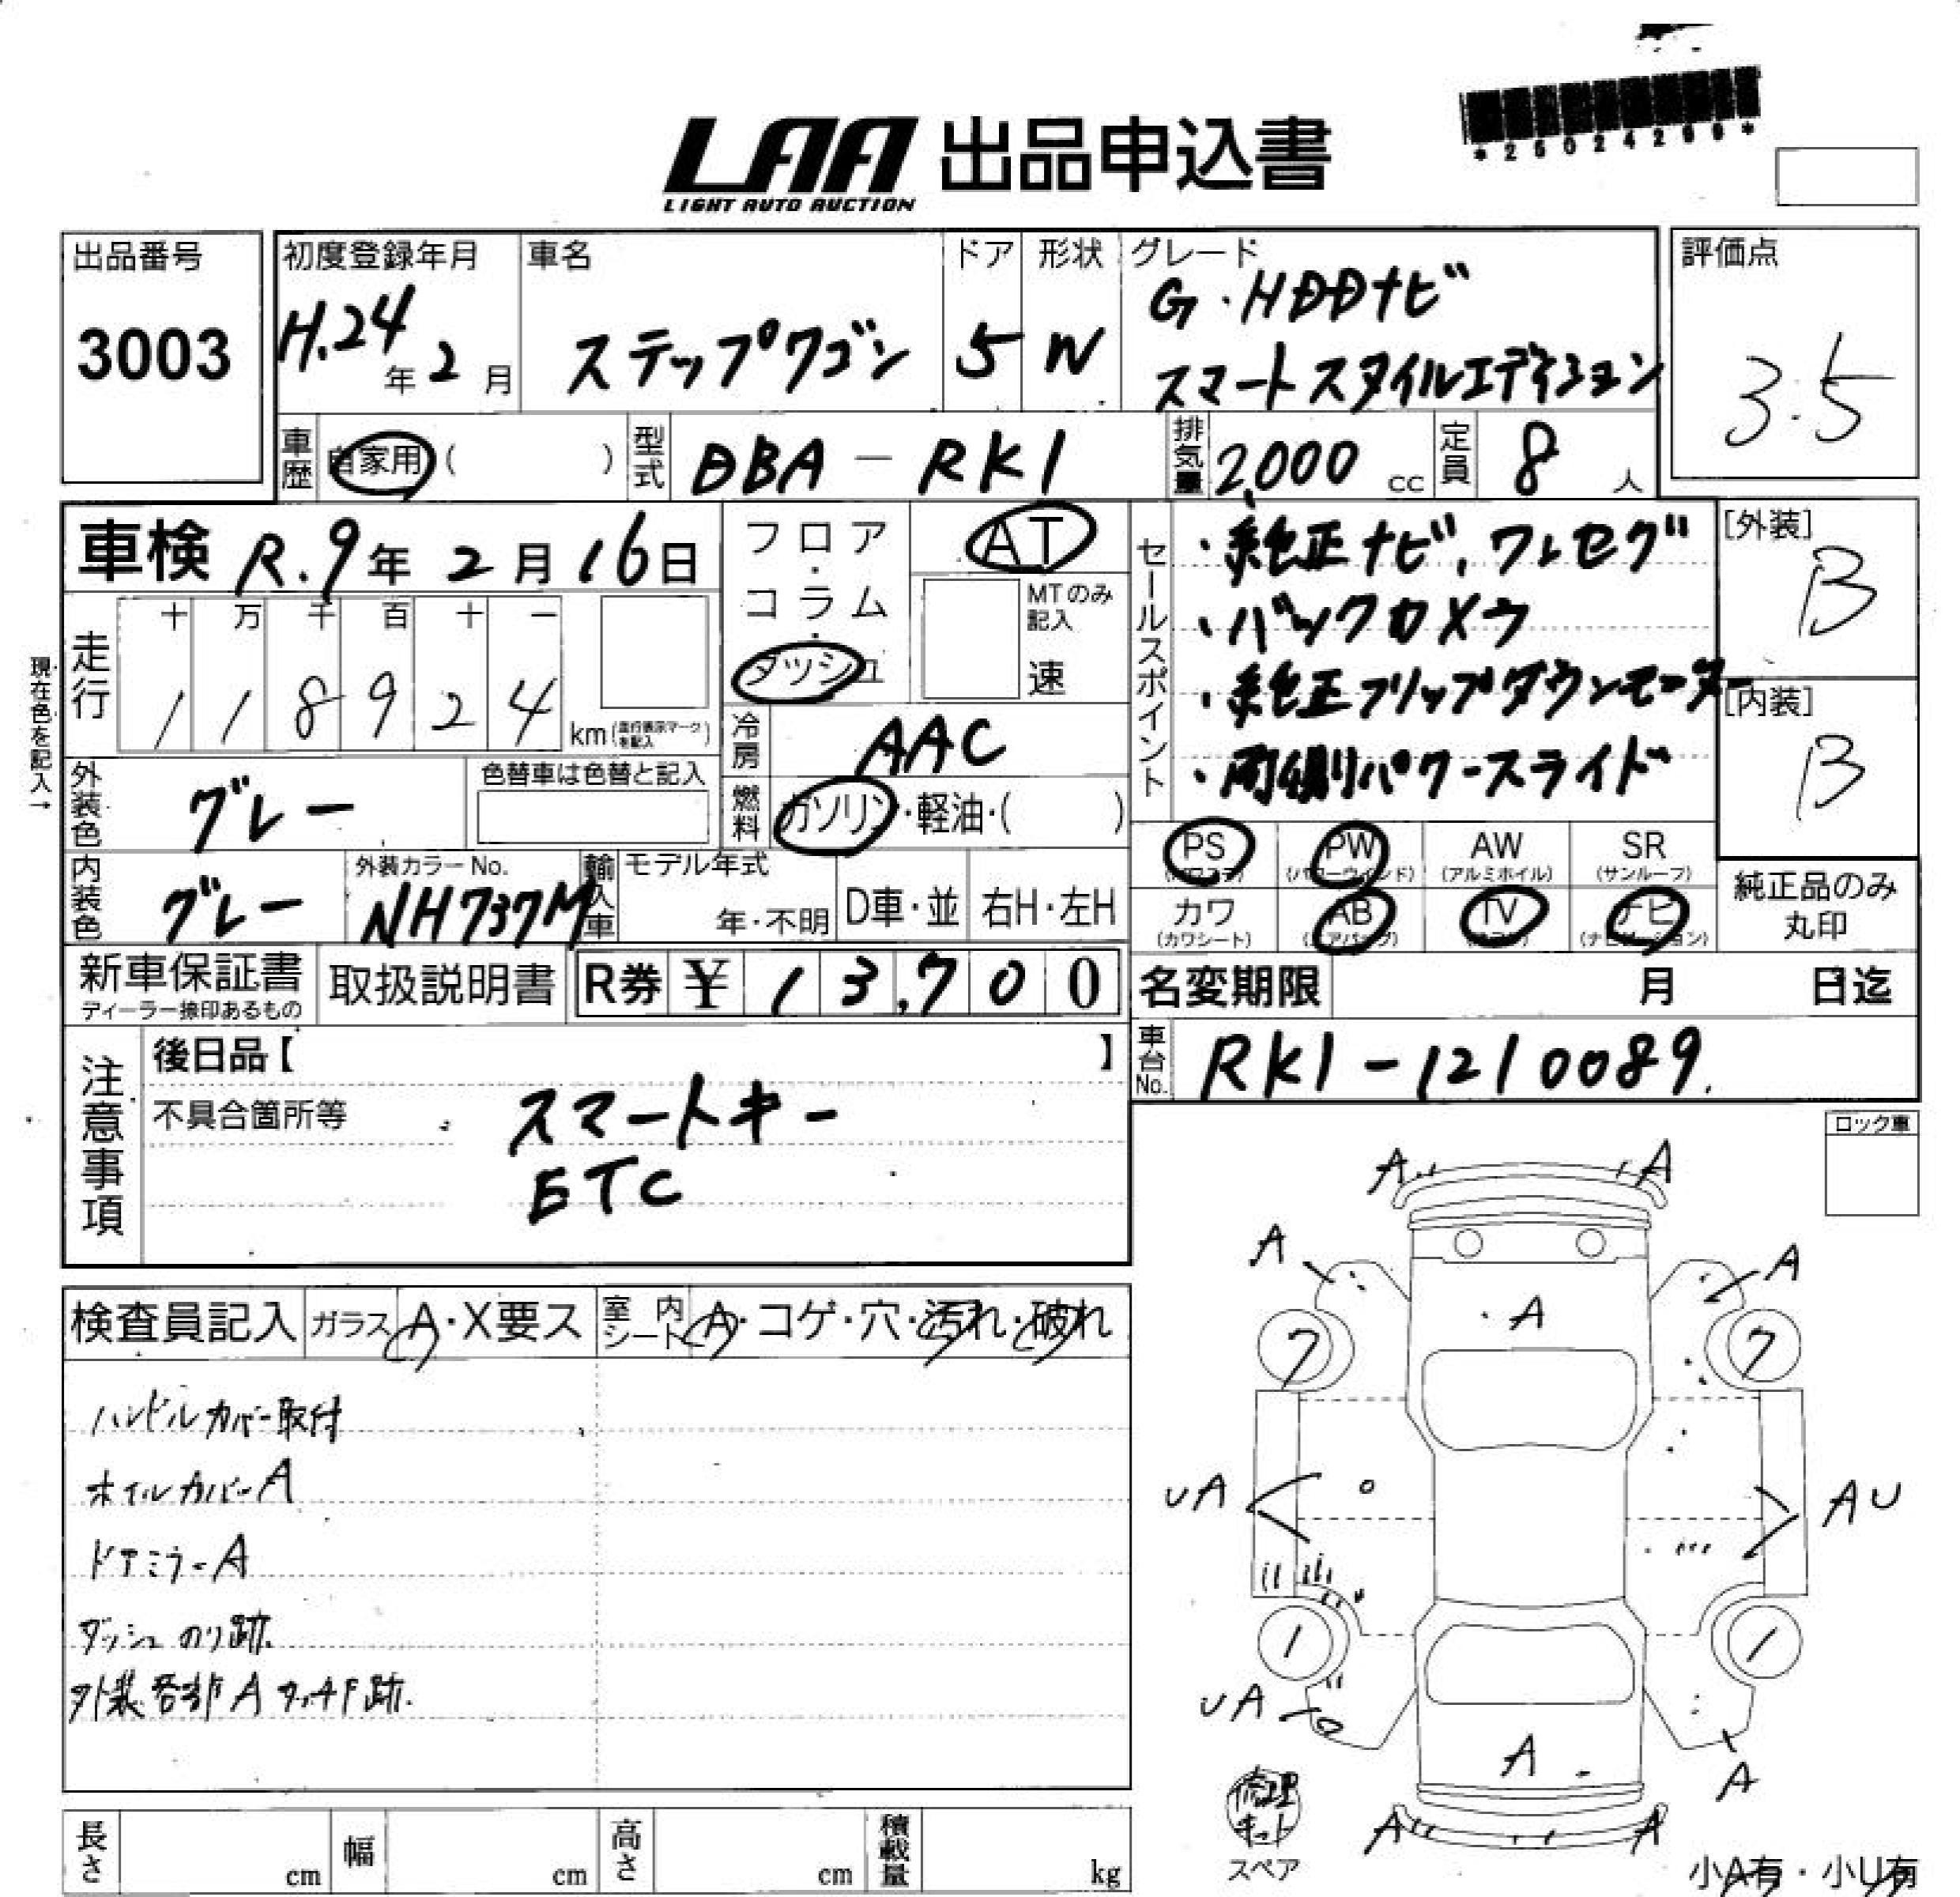 *25024299*
LAA 出品申込書
LIGHT AUTO AUCTION
出品番号 3003
初度登録年月 H.24年2月
車名 ステップワゴン
ドア 5
形状 W
グレード G・HDDナビ
スマートスタイルエディション
評価点 3.5
車歴 自家用( )
型式 DBA-RK1
排気量 2,000 cc
定員 8 人
車検 R.9年 2月 16日
フロア・コラム・ダッシュ
AT
MTのみ記入
速
セールスポイント
・純正ナビ,ワンセグ
・バックカメラ
・純正フリップダウンモーター
・両側パワースライド
[外装] B
[内装] B
現在色を記入→
走行 十 万 千 百 十 一
1 1 8 9 2 4 km(走行表示マークを記入)
冷房 AAC
燃料 ガソリン・軽油・( )
外装色 グレー
色替車は色替と記入
内装色 グレー
外装カラーNo. NH737M
輸入車 モデル年式 年・不明
D車・並 右H・左H
PS (パワステ)
PW (パワーウィンド)
AW (アルミホイル)
SR (サンルーフ)
カワ (カワシート)
AB (エアバック)
TV (テレビ)
ナビ (ナビゲーション)
純正品のみ丸印
新車保証書
ディーラー捺印あるもの
取扱説明書
R券 ¥ 13,700
名変期限 月 日迄
車台No. RK1-1210089.
注意事項
後日品【 】
不具合箇所等
スマートキー
ETC
ロック車
検査員記入 ガラス A・X要ス
室内シート A・コゲ・穴・汚れ・破れ
ハンドルカバー取付
ホイルカバーA
ドアミラーA
ダッシュのり跡.
外装各部Aタッチ跡.
A A
A A
A
7 7
UA AU
1 1
UA
A A
A A
修理キット
スペア
小A有・小U有
長さ cm 幅 cm 高さ cm 積載量 kg